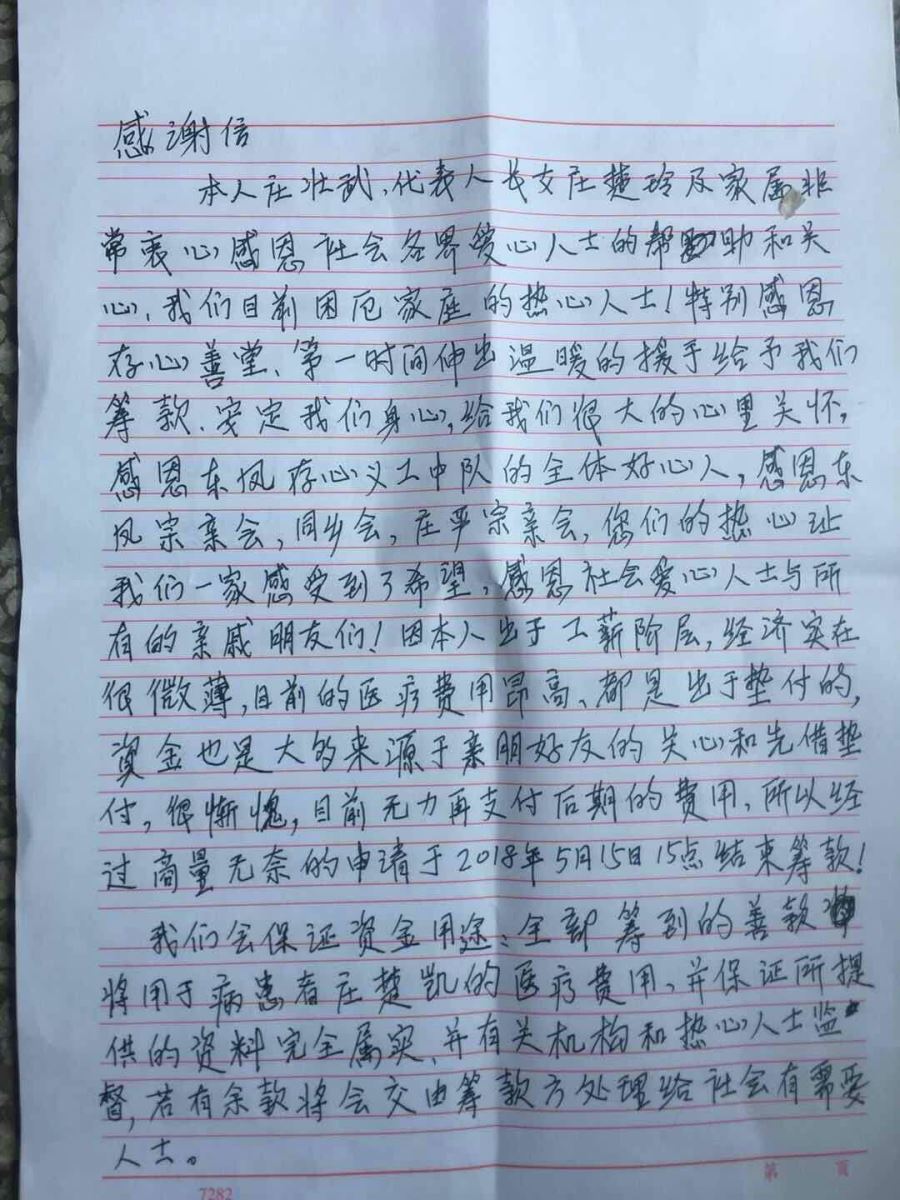 感谢信
本人庄壮武、代表人长女庄楚玲及家属非
常衷心感恩社会各界爱心人士的帮助和关
心、我们目前困厄家庭的热心人士！特别感恩
存心善堂、第一时间伸出温暖的援手给予我们
筹款、安定我们身心，给我们很大的心里关怀，
感恩东凤存心义工中队的全体好心人，感恩东
凤宗亲会，同乡会，庄严宗亲会，您们的热心让
我们一家感受到了希望，感恩社会爱心人士与所
有的亲戚朋友们！因本人出于工薪阶层，经济实在
很微薄，目前的医疗费用昂高、都是出于垫付的，
资金也是大的来源于亲朋好友的关心和先借垫
付，很惭愧，目前无力再支付后期的费用、所以经
过商量无奈的申请于2018年5月15日15点结束筹款！
我们会保证资金用途：全部筹到的善款
将用于病患者庄楚凯的医疗费用、并保证所提
供的资料完全属实、并有关机构和热心人士监
督，若有余款将会交由筹款方处理给社会有需要
人士。
7282
第 页